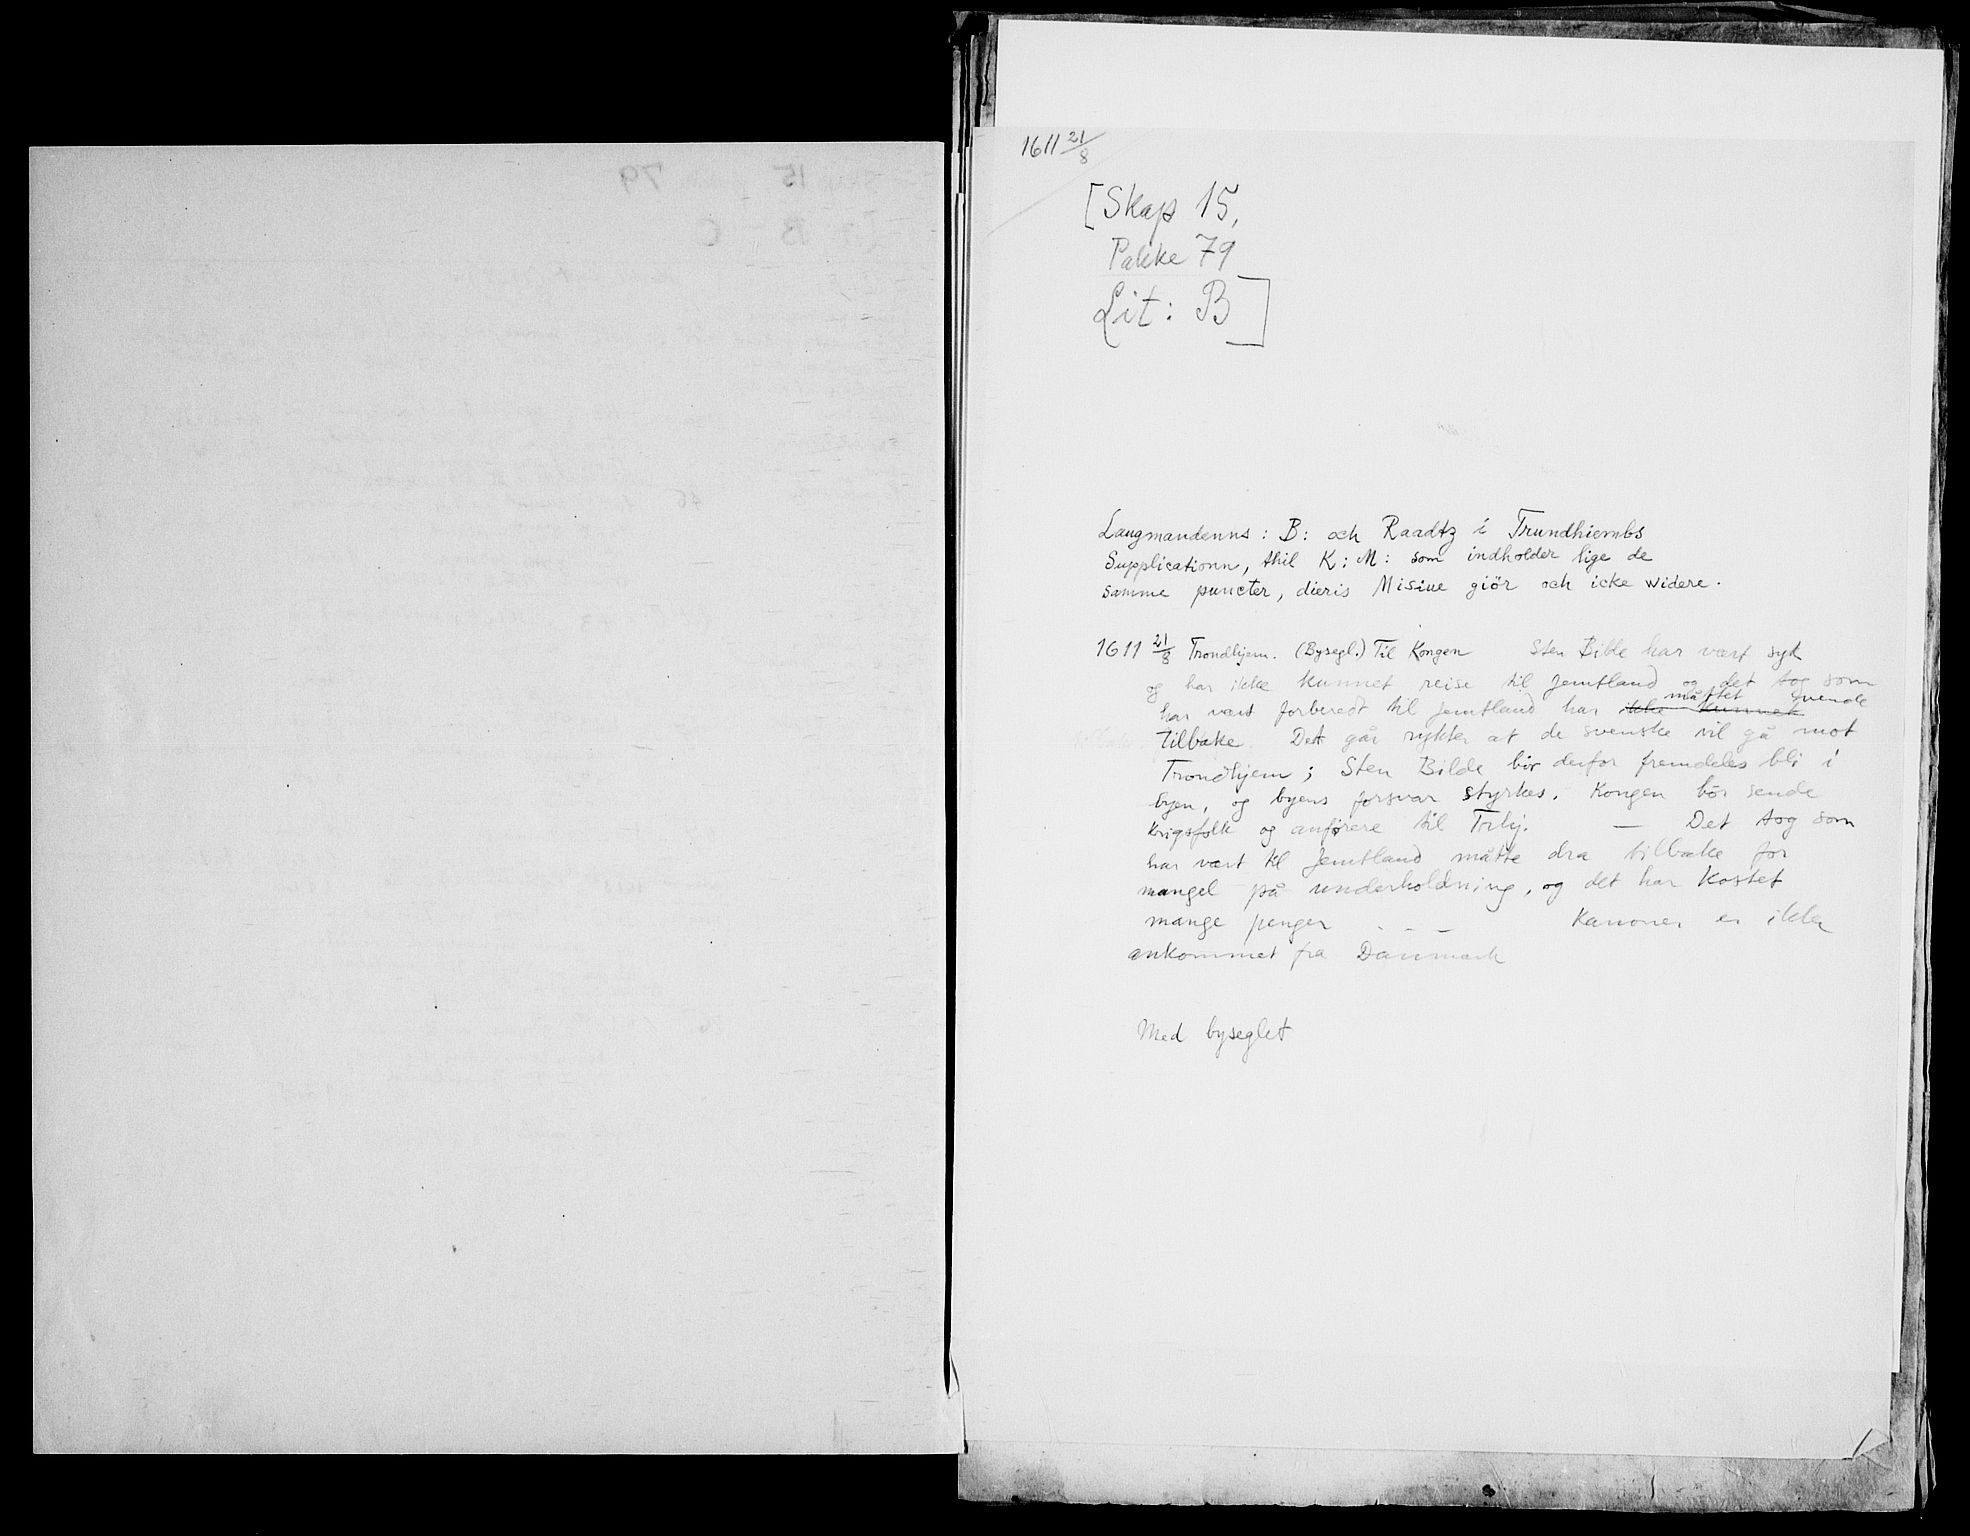 1611 21/8
[Skap 15,
Pakke 79
Lit: B]
Laugmandenns: B: och Raadtz i Trundhiembs
Supplicationn, thil K: M: som indholder lige de
samme puncter, dieris Misiue giör och icke widere.
1611 21/8 Trondhjem. (Bysegl.) Til Kongen Sten Bilde har vært syk
og har ikke kunnet reise til Jemtland og det tog som
har vært forberedt til Jemtland har ikke kunnet måttet vende
tilbake. Det går rykter at de svenske vil gå mot
Trondhjem; Sten Bilde bör derfor fremdeles bli i
byen, og byens forsvar styrkes. Kongen bör sende
krigsfolk og anförere til Trhj. — Det tog som
har vært til Jemtland måtte dra tilbake for
mangel på underholdning, og det har kostet
mange penger - - - Kanoner er ikke
ankommet fra Danmark
Med byseglet